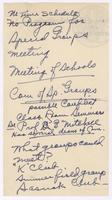 No Time Schedule
No Program for
Special Groups
meeting
Meeting of Schools
Com of Sp. Groups
possible Conflict
Class Room Seminars
Dr. Paul B. Mitchell
has special dem of Tues.
What groups could
meet?
"K" Club
Summer field group
Kiwanis Club